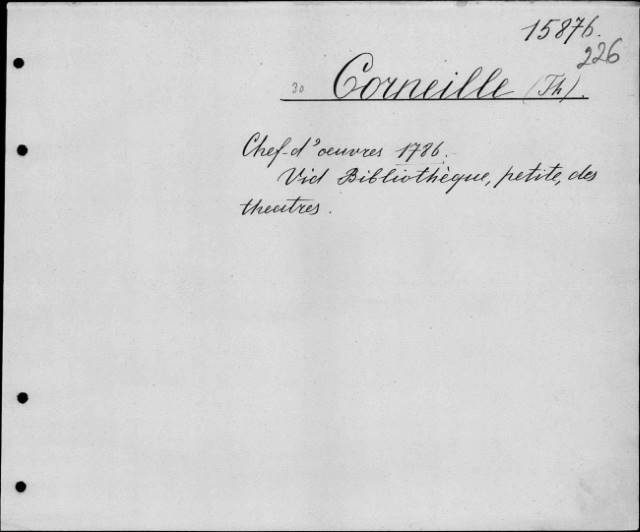 15876.
226
30 Corneille (Th).
Chef-d'oeuvres 1786.
Vid Bibliothèque, petite, des
theatres.